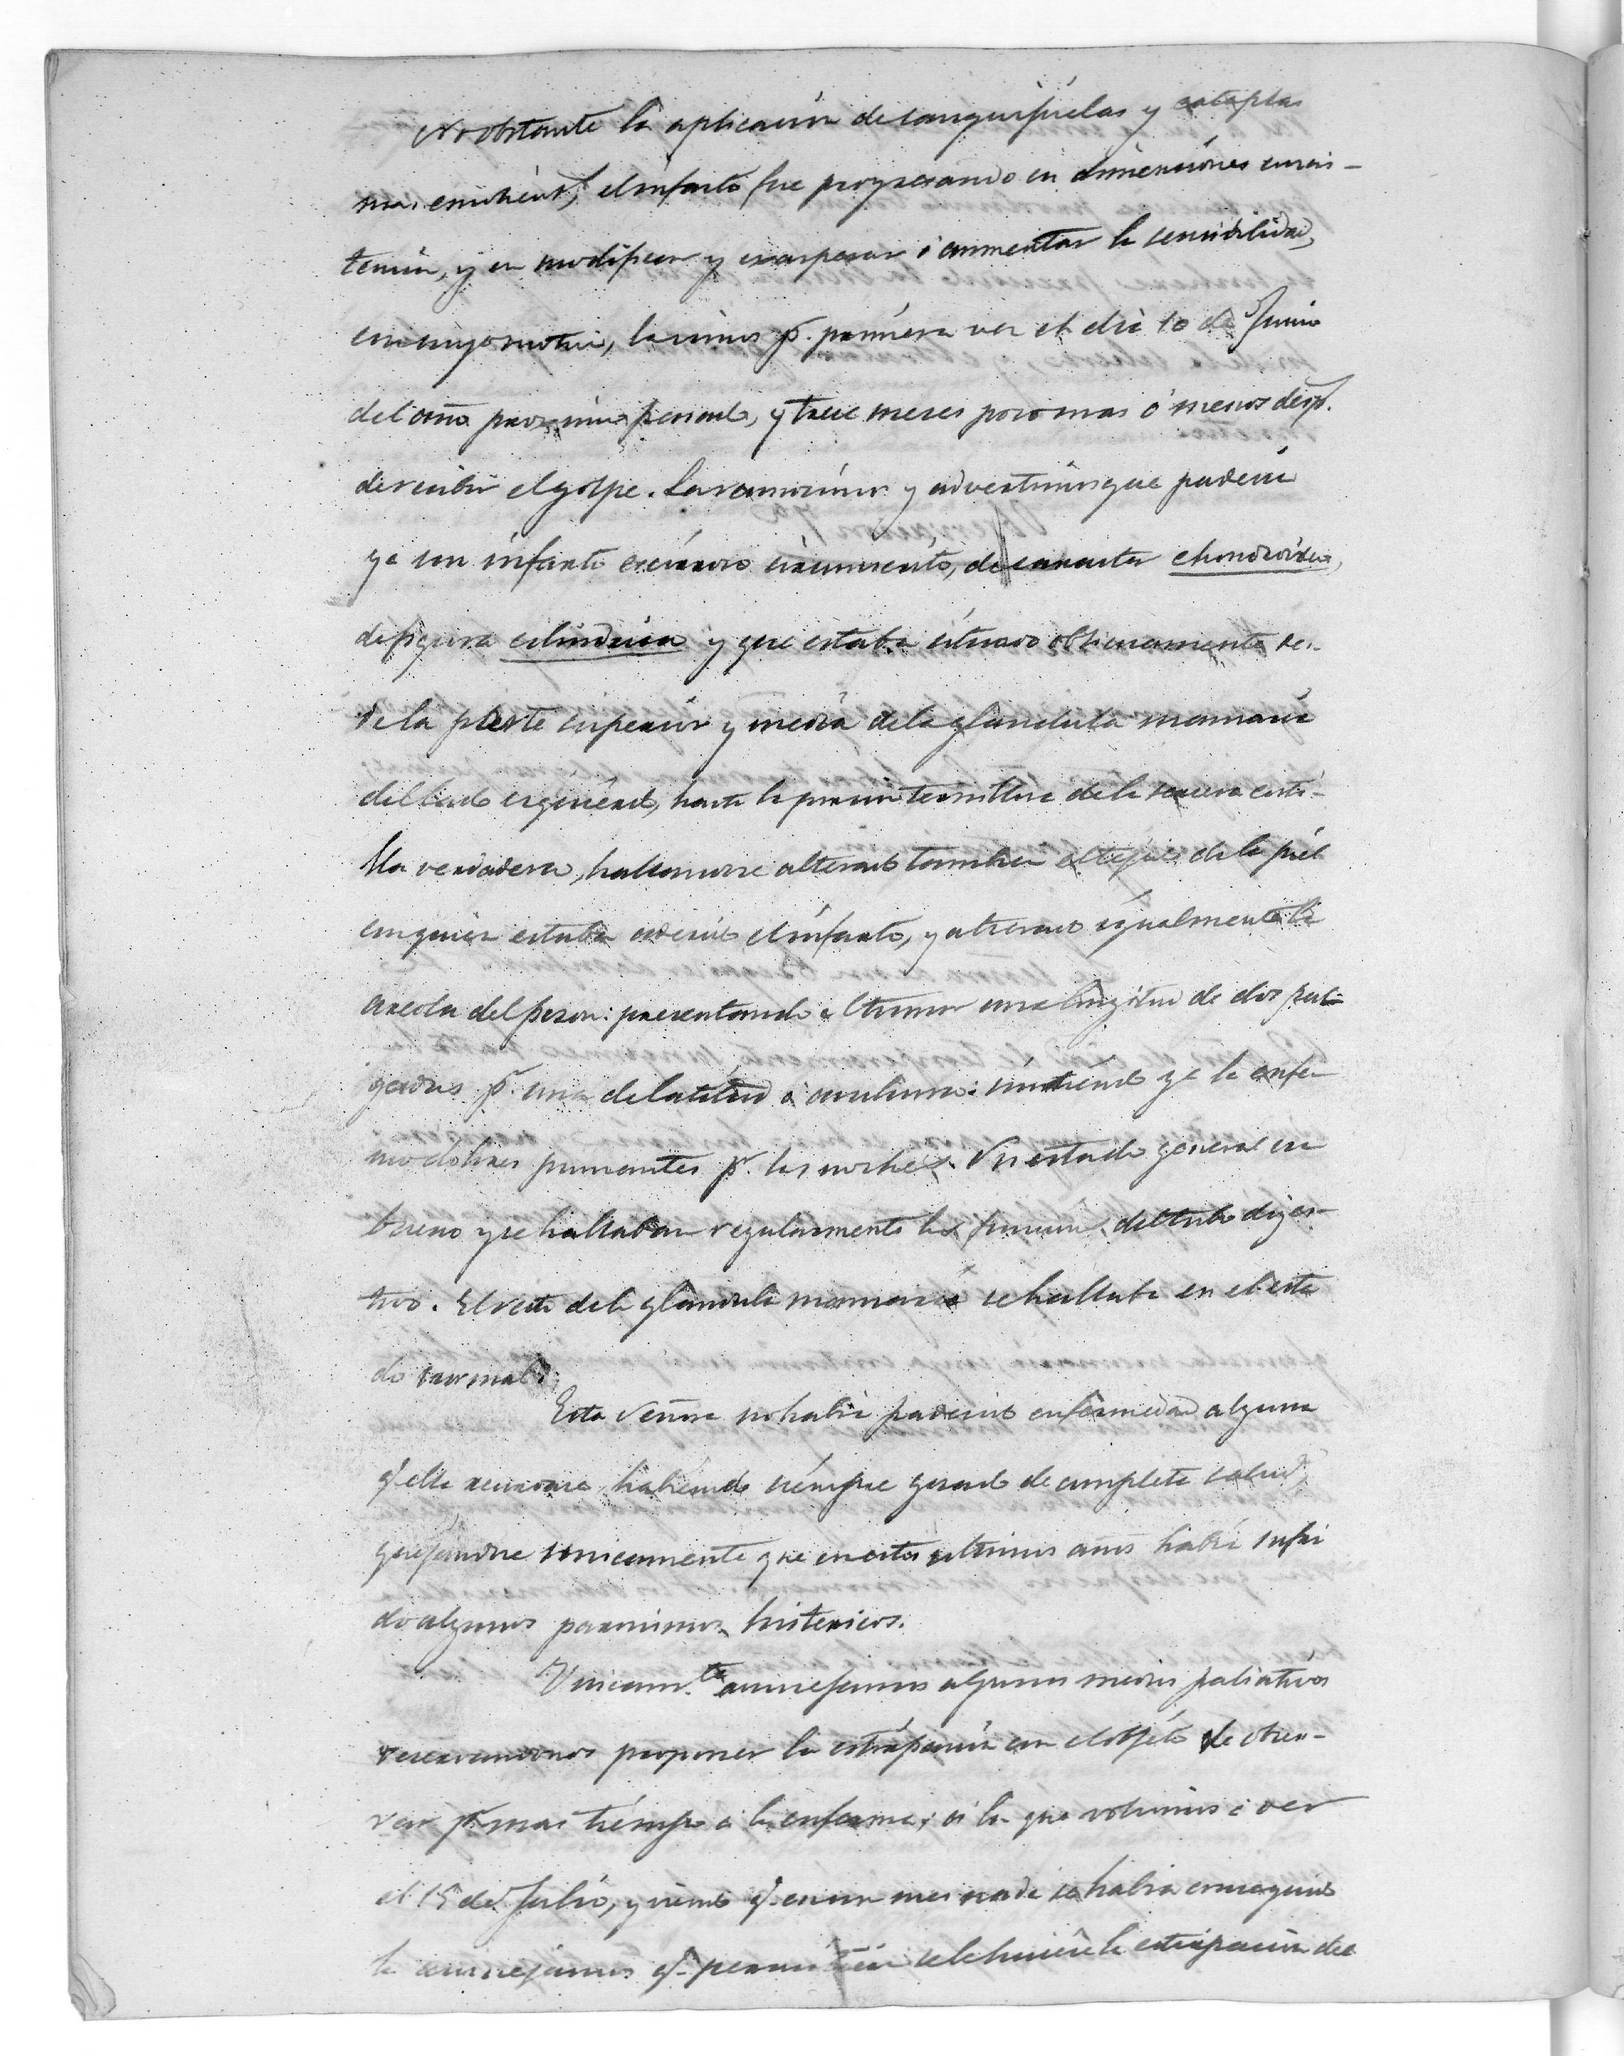 No obstante la aplicacion de sanguijuelas y cataplas
mas emolient.s, el infarto fue progresando en dimensiones consis-
tencia, y en modificar y exasperar ó aumentar la sensibilidad,
con cuyo motivo, la vimos p.r primera vez el dia 10 de Junio
del año proximo pasado, y trece meses poco mas ó menos desp.s
de recibir el golpe. La reconocimos y advertimos que padecia
ya un infarto escirroso circunscrito, de caracter chondroideo,
de figura cilindrica y que estaba situado oblicuamente des-
de la parte superior y media de la glandula mamaria
del lado izquierdo, hasta la proximidad de la tercera costi-
lla verdadera, hallandose alterado tambien el tejido de la piel
con quien estaba adherido el infarto, y alterado igualmente la
areola del pezon: presentando el tumor una longitud de dos pul-
gadas p.r una de latitud ó anchura: sintiendo ya la enfer-
ma dolores punzantes p.r las noches. Su estado general era
bueno y se hallaban regularmente las funciones del tubo diges-
tivo. El resto de la glandula mamaria se hallaba en el esta
do normal.
Esta Señora no habia padecido enfermedad alguna
q.e ella recordara, habiendo siempre gozado de completa salud,
quejandose unicamente que en estos ultimos años habia sufri
do algunos paroxismos histericos.
Unicam.te aconsejamos algunos medios paliativos
reservandonos proponer la estirpacion con el objeto de obser-
var p.r mas tiempo á la enferma; á la que volvimos á ver
el 15 de Julio, y viendo q.e en un mes nada se habia conseguido
la aconsejamos q.e permitiera se le hiciere la estirpacion del